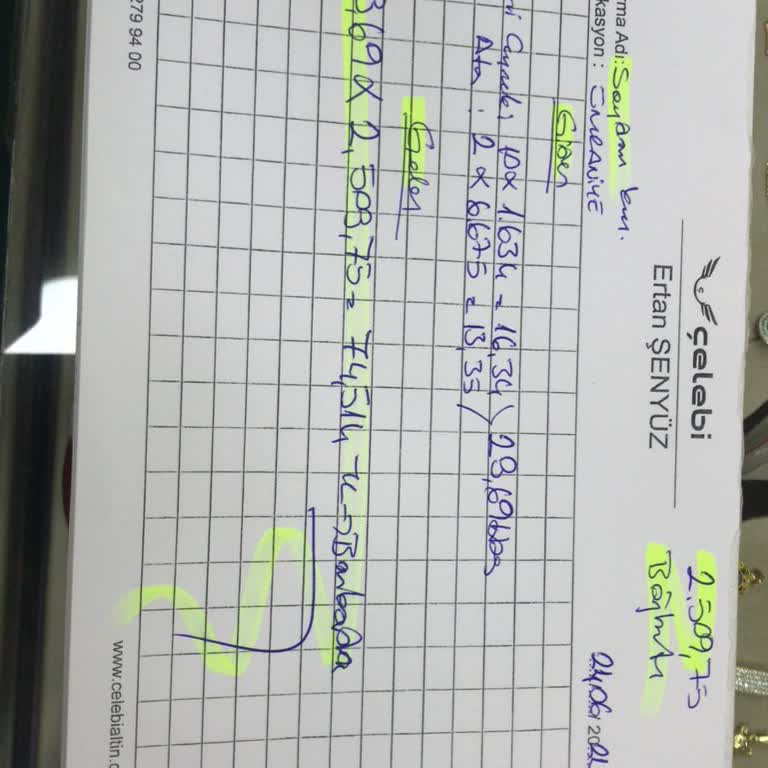 çelebi
Ertan ŞENYÜZ
2.509,75
Bağlantı
rma Adı: Saydam kuy.
kasyon : ÜMRANİYE
24/06/20
Giden
10 x 1.634 = 16,34
Ata : 2 x 6,675 = 13,35
29,69
Gelen
,69 x 2,509,75 = 74,514 TL → Bankadan
279 94 00
www.celebialtin.c